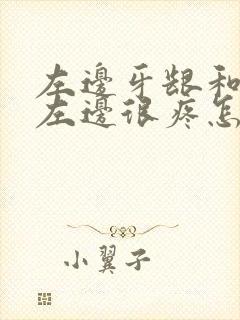 左邊牙龈和
左邊很疼怎
小翼子